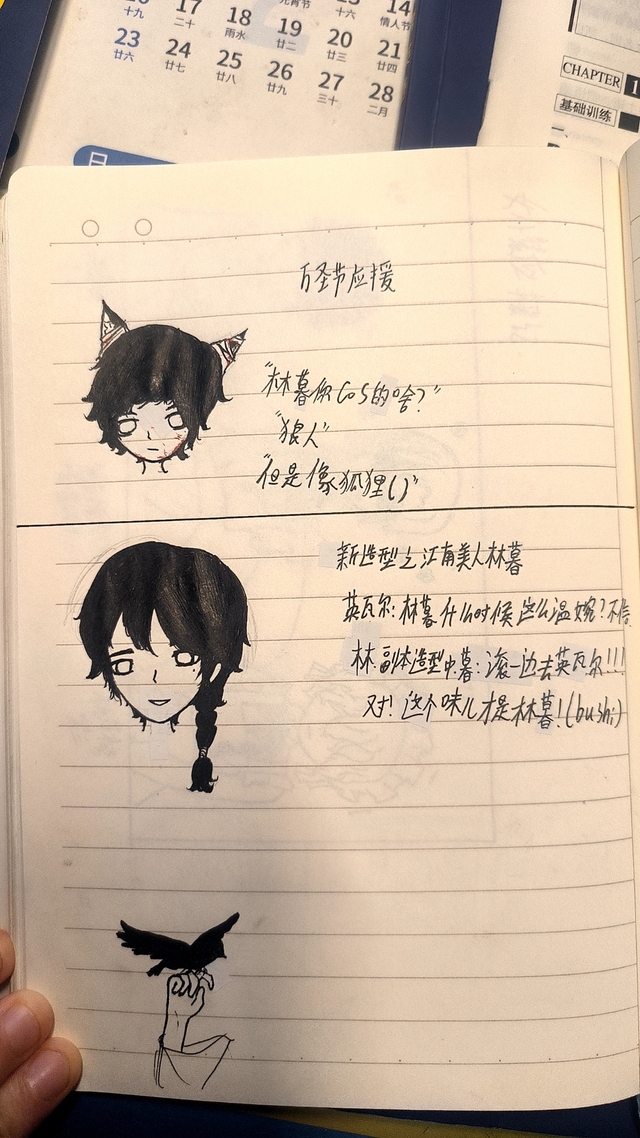 17 18 19 20 21
二十 雨水 廿二 廿三 廿四
十九
十六
情人节
14
23 24 25 26 27 28
廿六 廿七 廿八 廿九 三十 二月
CHAPTER 1
基础训练
一、
万圣节应援
“林暮你cos的啥？”
“狼人”
“但是像狐狸()”
新造型之江南美人林暮
英瓦尔：林暮什么时候这么温婉？不信
林.副本造型中.暮：滚一边去英瓦尔!!!
对！这个味儿才是林暮！(bushi)